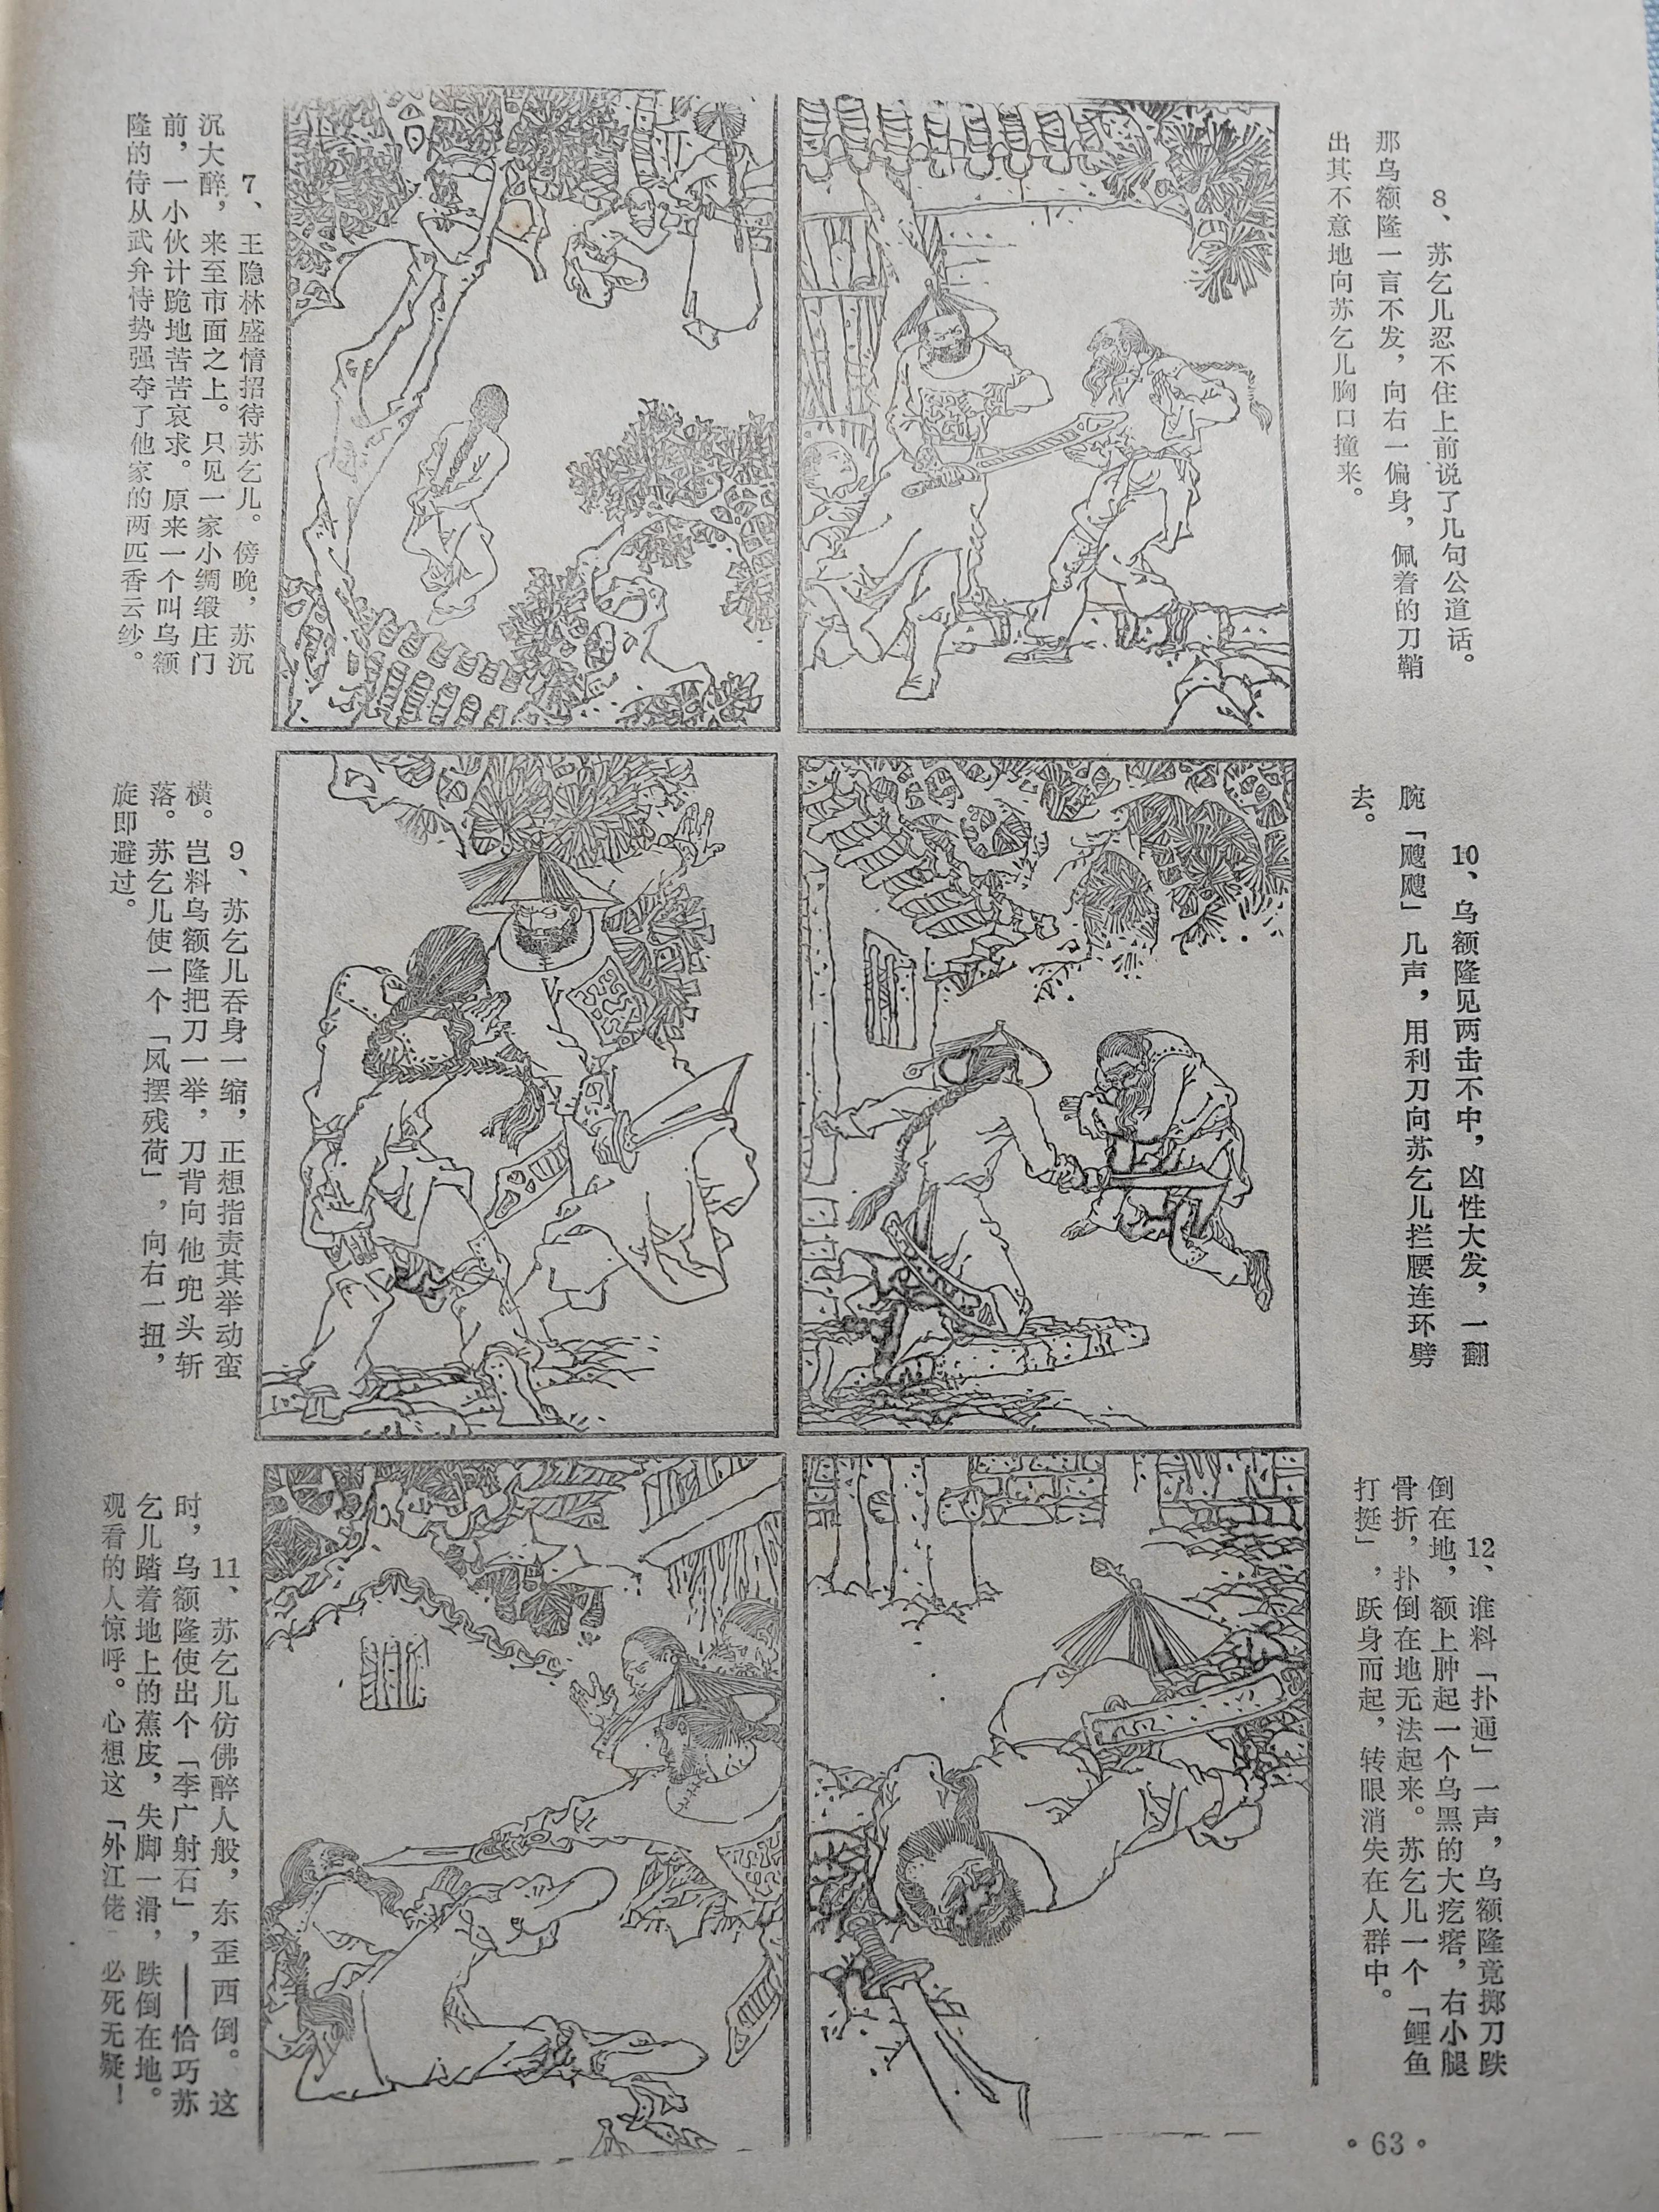 7、王隐林盛情招待苏乞儿。傍晚，苏沉
沉大醉，来至市面之上。只见一家小绸缎庄门
前，一小伙计跪地苦苦哀求。原来一个叫乌额
隆的侍从武弁恃势强夺了他家的两匹香云纱。
8、苏乞儿忍不住上前说了几句公道话。
那乌额隆一言不发，向右一偏身，佩着的刀鞘
出其不意地向苏乞儿胸口撞来。
9、苏乞儿吞身一缩，正想指责其举动蛮
横。岂料乌额隆把刀一举，刀背向他兜头斩
落。苏乞儿使一个「风摆残荷」，向右一扭，
旋即避过。
10、乌额隆见两击不中，凶性大发，一翻
腕「飕飕」几声，用利刀向苏乞儿拦腰连环劈
去。
11、苏乞儿仿佛醉人般，东歪西倒。这
时，乌额隆使出个「李广射石」，——恰巧苏
乞儿踏着地上的蕉皮，失脚一滑，跌倒在地。
观看的人惊呼。心想这「外江佬」必死无疑！
12、谁料「扑通」一声，乌额隆竟掷刀跌
倒在地，额上肿起一个乌黑的大疙瘩，右小腿
骨折，扑倒在地无法起来。苏乞儿一个「鲤鱼
打挺」，跃身而起，转眼消失在人群中。
·63·